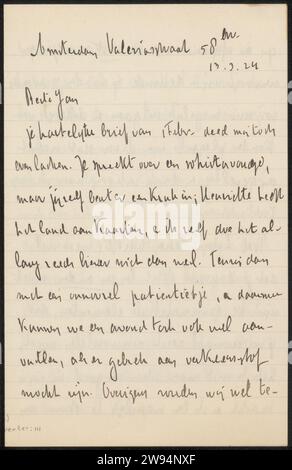 Amsterdam Valeriusstraat 58 bv.
13.3.24
Beste Jan
je hartelijke brief van 1 Febr. deed mij toch
even lachen. Je spreekt over een whistavondje,
maar jijzelf bent er een kruk in, Henriëtte heeft
het land aan kaarten, en ik zelf doe het al-
lang reeds liever niet dan wel. Tenzij dan
met een onnozel patientietje, en daarmee
kunnen we een avond toch ook wel aan-
vullen, als er gebrek aan verkeersstof
mocht zijn. Overigens zouden wij wel te-
alamy
Image ID: 2W94NXF
www.alamy.com